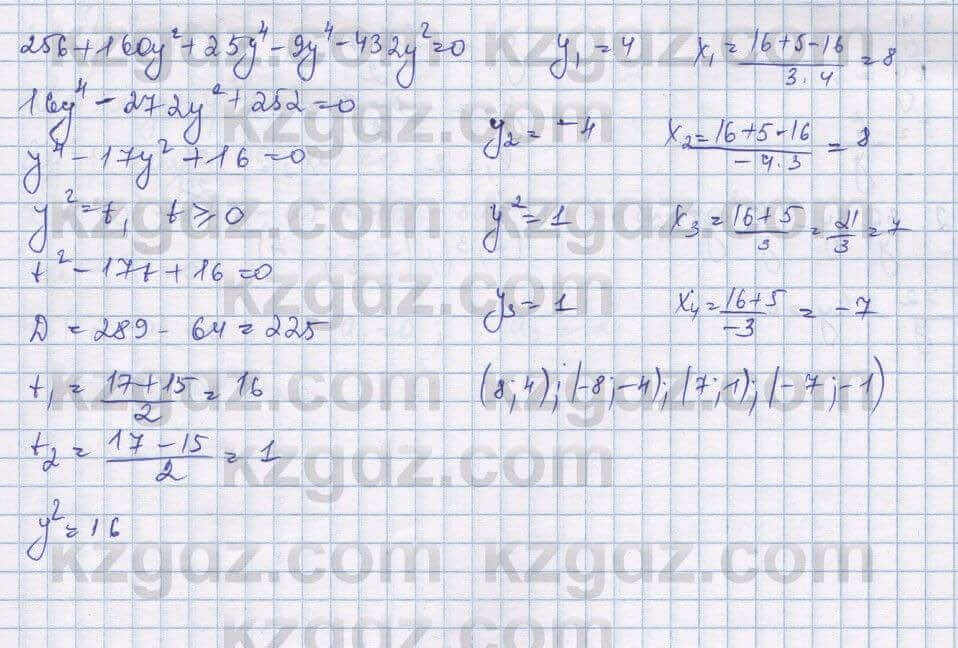 256+160y²+25y⁴-9y⁴-432y²=0
16y⁴-272y²+252=0
y⁴-17y²+16=0
y²=t, t≥0
t²-17t+16=0
D=289-64=225
t₁=(17+15)/2=16
t₂=(17-15)/2=1
y²=16
y₁=4 x₁=(16+5·16)/(3·4)=8
y₂=-4 x₂=(16+5·16)/(-4·3)=8
y²=1 x₃=(16+5)/3=21/3=7
y₃=1 x₄=(16+5)/(-3)=-7
(8;4);(-8;-4);(7;1);(-7;-1)
kzgdz.com
kzgdz.com
kzgdz.com
kzgdz.com
kzgdz.com
kzgdz.com
kzgdz.com
kzgdz.com